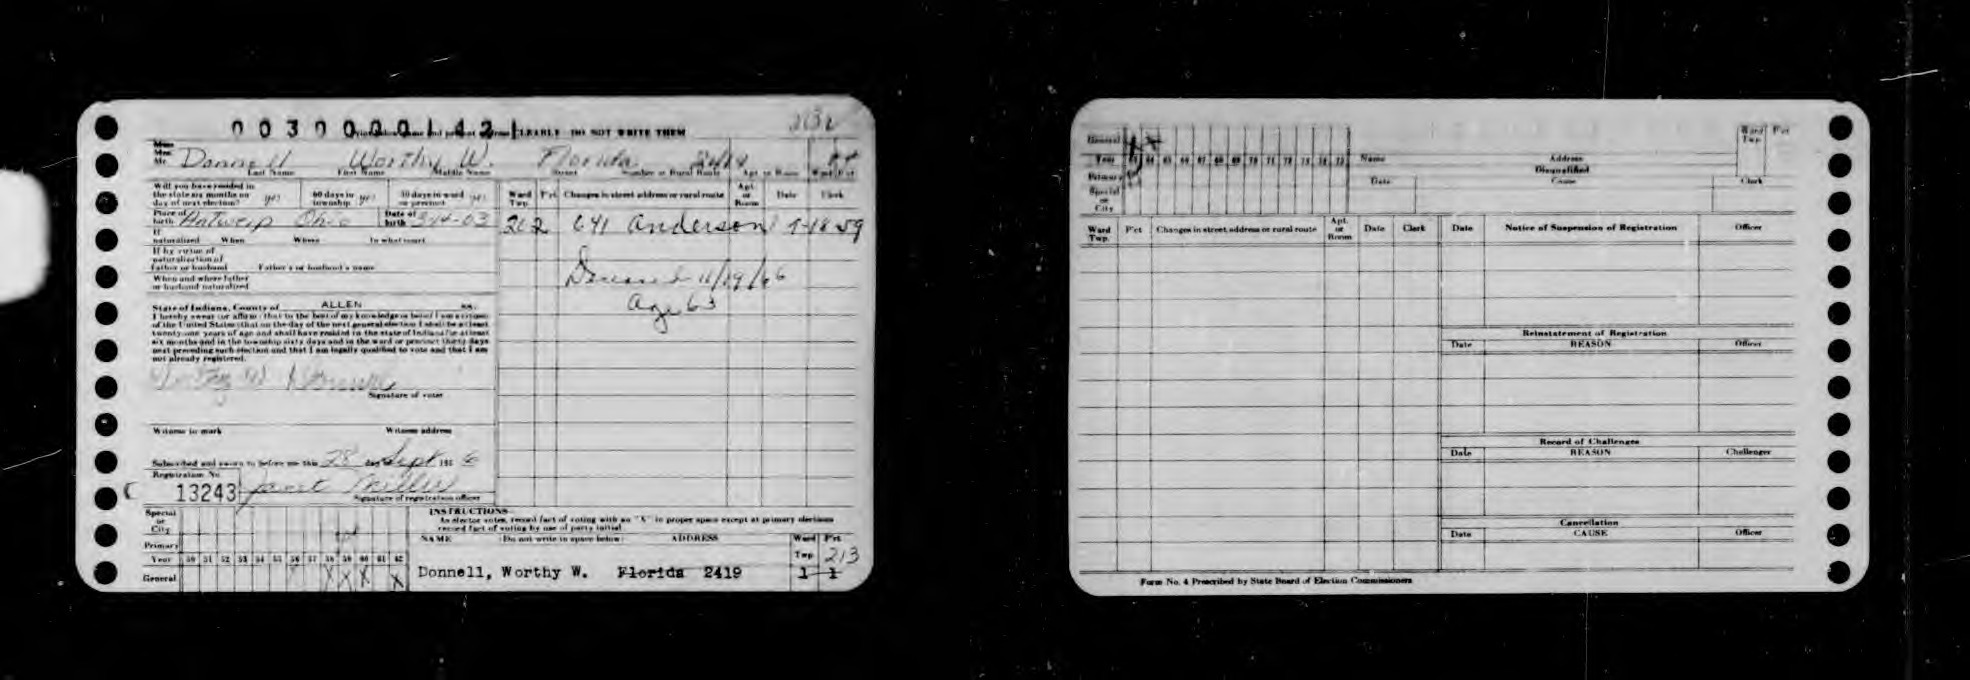 0030000142
CLEARLY DO NOT WRITE THEM
Mrs.
Mr. Donnell Worthy W. Florida 2419
Last Name First Name Middle Name Street Number or Rural Route Apt. or Room Ward Pct
Will you have resided in the state six months on day of next election? yes 60 days in township yes 30 days in ward or precinct yes
Place of birth Antwerp Ohio Date of birth 3-14-03
If naturalized When Where In what court
If by virtue of naturalization of father or husband Father's or husband's name
When and where father or husband naturalized
State of Indiana, County of ALLEN ss:
I hereby swear (or affirm) that to the best of my knowledge or belief I am a citizen
of the United States that on the day of the next general election I shall be at least
twenty-one years of age and shall have resided in the state of Indiana for at least
six months and in the township sixty days and in the ward or precinct thirty days
next preceding such election and that I am legally qualified to vote and that I am
not already registered.
Signature of voter
Witness to mark Witness address
Subscribed and sworn to before me this 28 day Sept 1956
Registration No.
13243 Janet Miller
Signature of registration officer
Ward Twp. Pct. Changes in street address or rural route Apt. or Room Date Clerk
202 641 Anderson
Deceased 11/19/66
age 63
Special or City
Primary
Year 50 51 52 53 54 55 56 57 58 59 60 61 62
General X X X X
INSTRUCTIONS
As elector votes, record fact of voting with an "X" in proper space except at primary elections
record fact of voting by use of party initial.
NAME (Do not write in space below) ADDRESS Ward Twp. Pct
213
Donnell, Worthy W. Florida 2419 1 1
General
Year 63 64 65 66 67 68 69 70 71 72 73 74 75
Primary
Special or City
Name Address Ward Twp. Pct
Disqualified
Date Cause Clerk
Ward Twp. Pct Changes in street address or rural route Apt. or Room Date Clerk
Date Notice of Suspension of Registration Officer
Reinstatement of Registration
Date REASON Officer
Record of Challenges
Date REASON Challenger
Cancellation
Date CAUSE Officer
Form No. 4 Prescribed by State Board of Election Commissioners